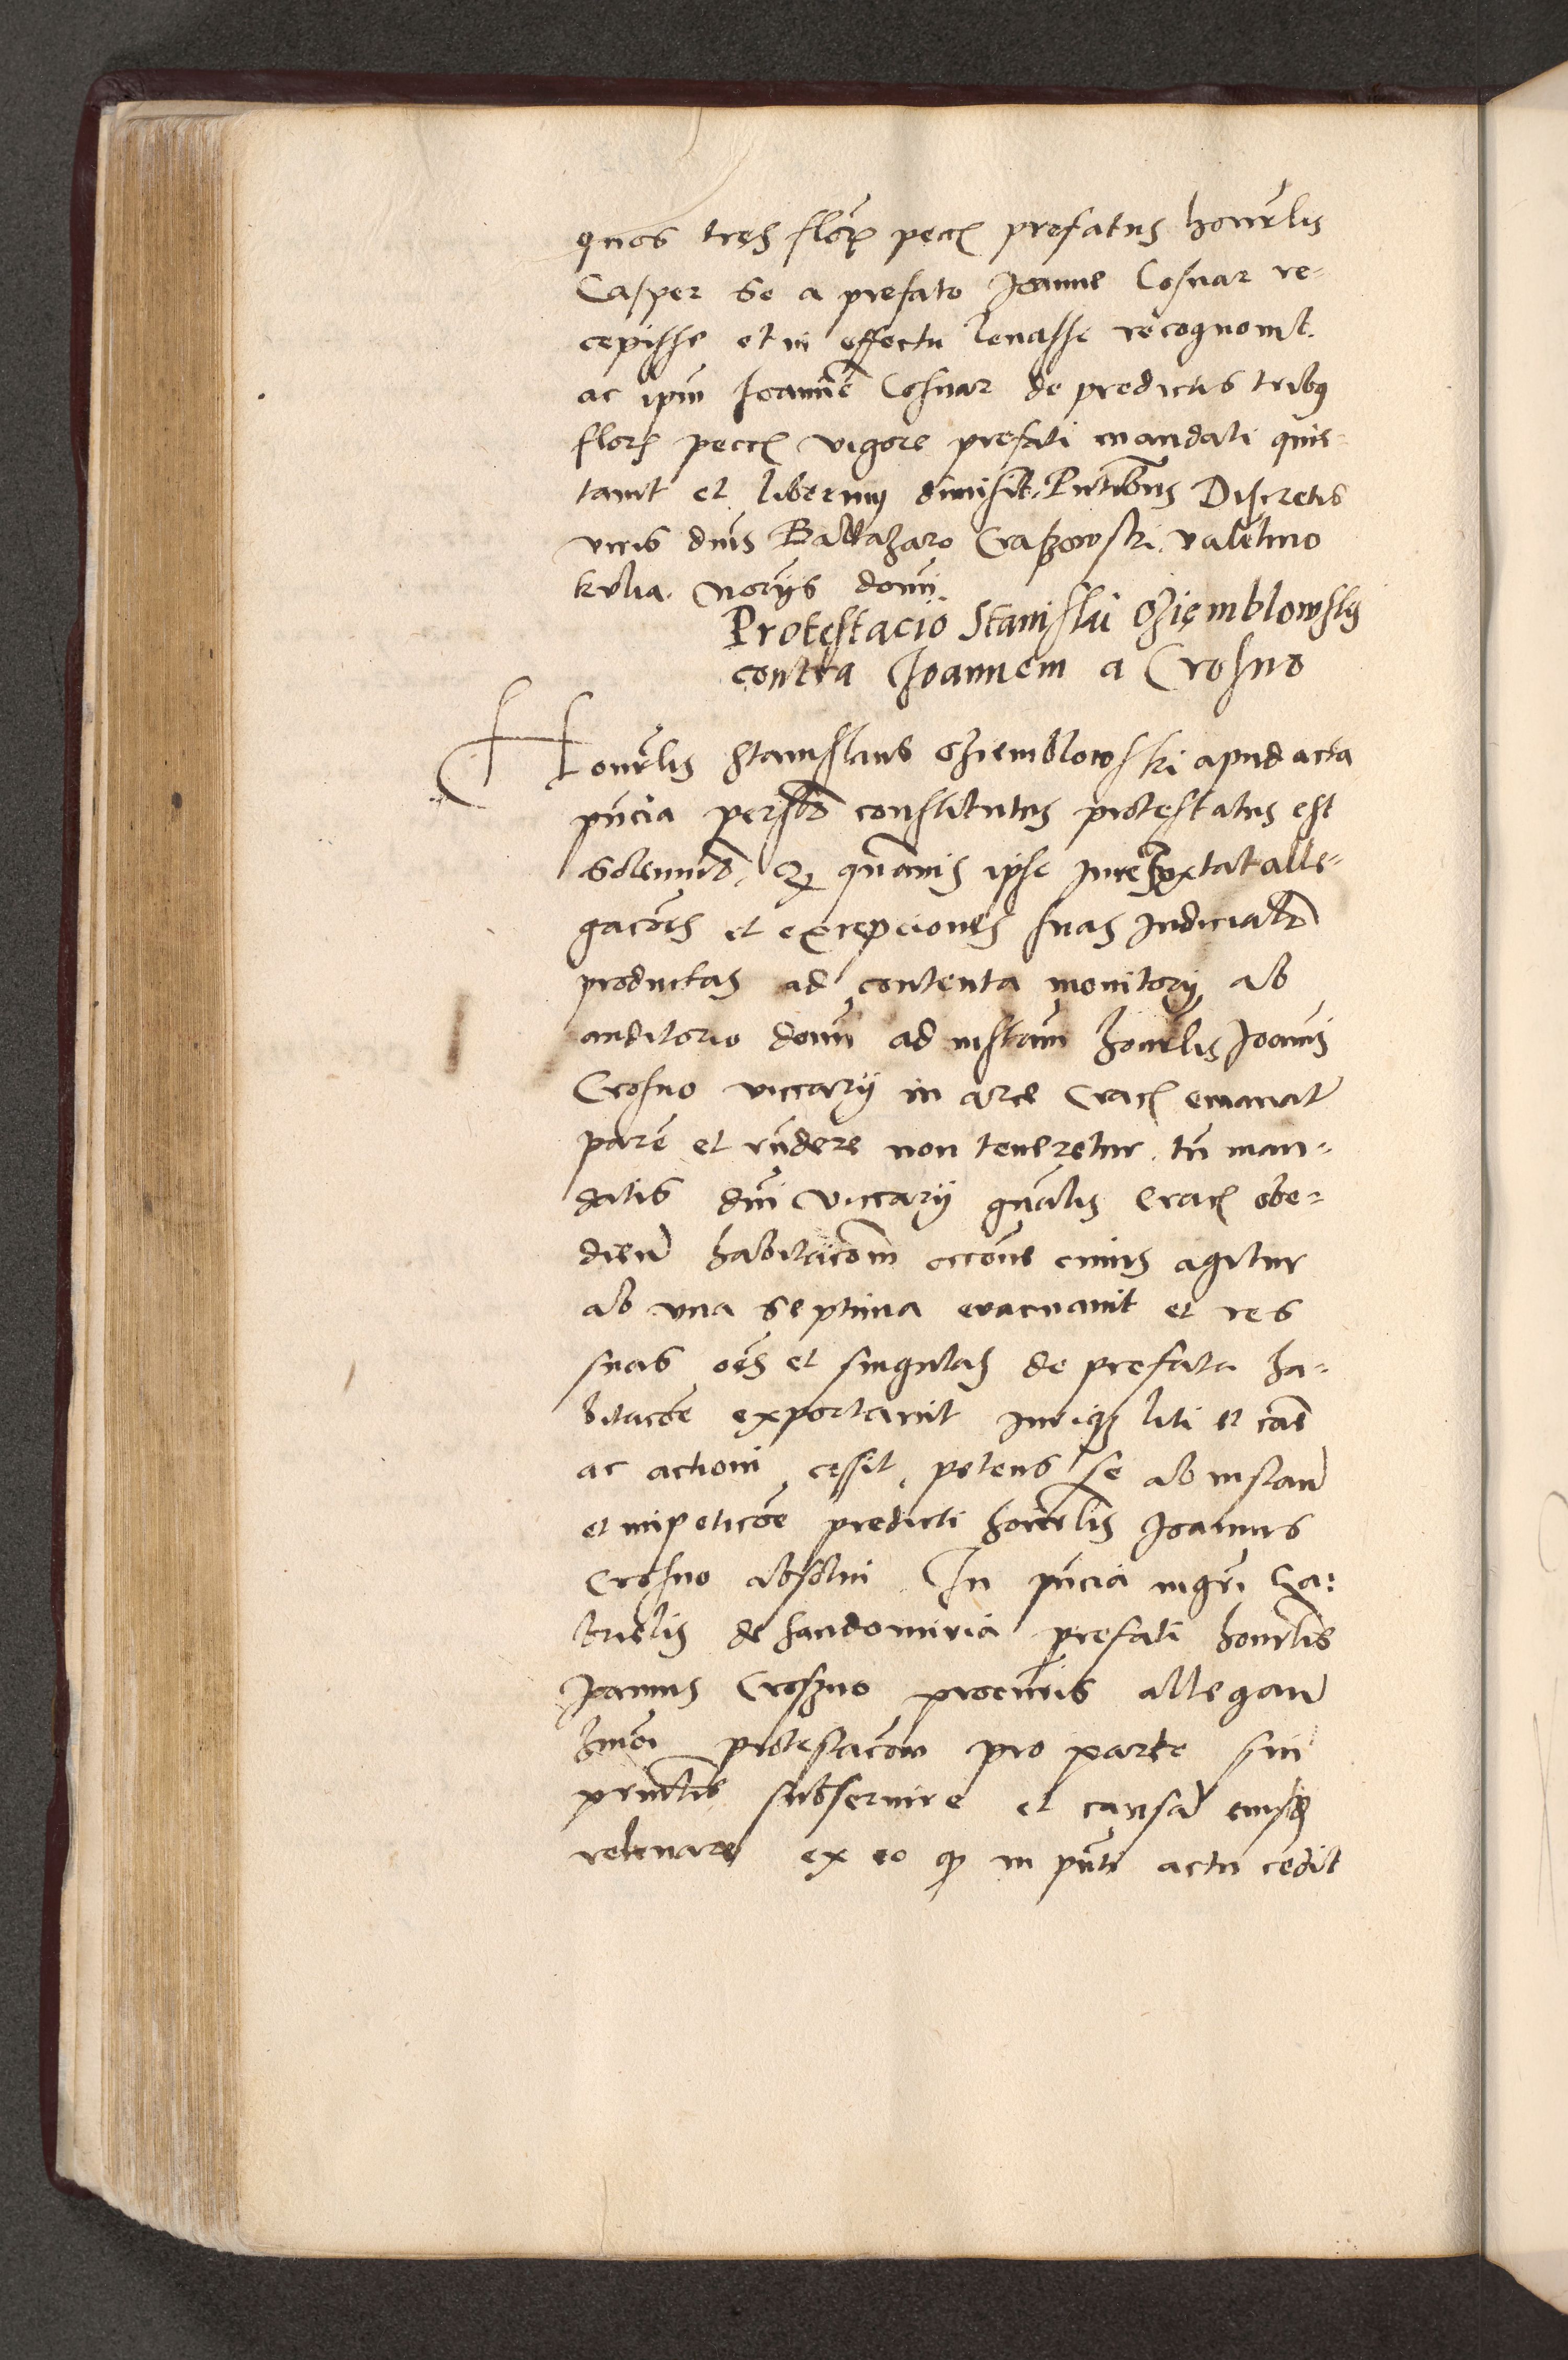 quos tres florͫ pecc prefatus honrlis
Casper se a prefato Joanne Cosnar re-
cepisse et in effectu levasse recognovit.
ac ipm Joannē Cosnar de predictis tribꝰ
flor pecc vigore prefati mandati quie-
tavit et liberum dimisit. Pntibus Discretis
viris dnis Baltazaro Craszowski. valētino
kulia. Norijs domi
Protestacio Stanislai Oziemblowsky
contra Joannem a Crosno
Honrlis Stanislaus Oziemblowski apud acta
pncia persolr constitutus protestatus est
solennir, Qꝫ quamvis ipse iuxta alle-
gacões et excepciones suas Judicialr
productas ad contenta monitorij ab
auditorio domi ad instam honrlis Joanis
Crosno viccarij in arce Crac emanat
parē et rndere non teneretur. tn man-
datis dni viccarij gnalis Crac obe-
dien habitacōm occōne cuius agitur
ab una septima evacuavit et res
suas oēs et singulas de prefata ha-
bitacōe exportavit iuriqꝫ liti et cāe
ac actioni cessit, petens se ab instan
et impeticōe predicti honrlis Joannis
Crosno absolvi. In pncia mgri Ga-
brielis de Sandomiria prefati honrlis
Joannis Croszno procuris allegan
hmōi protestacōm pro parte sui
prinlis subservire et causam eiusdꝫ
relevare ex eo qꝫ in pnti actu cedit